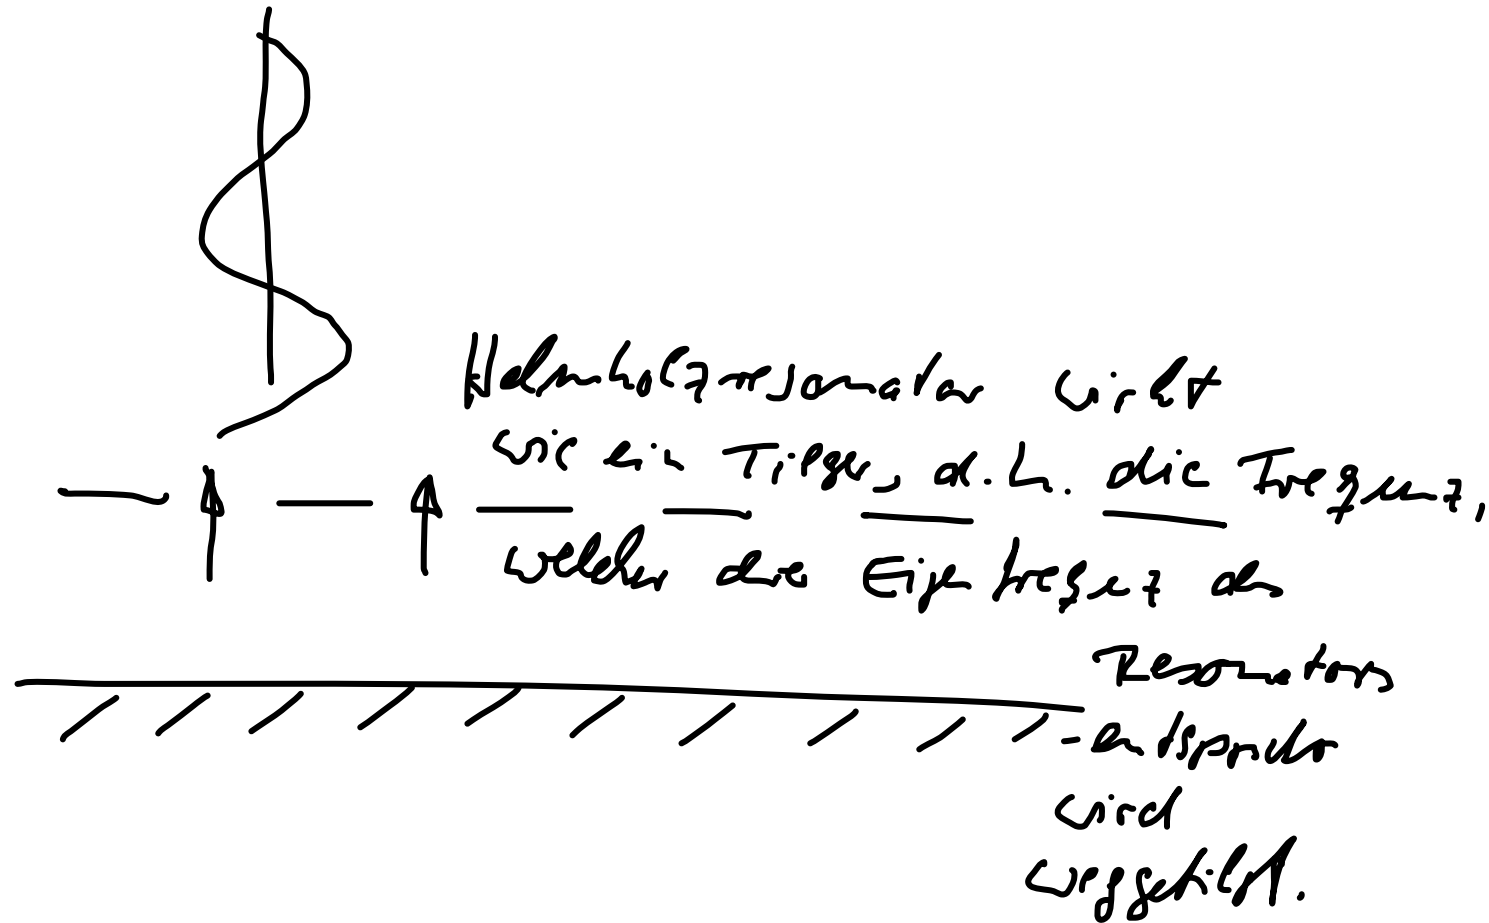 Helmholtzresonator wirkt
wie ein Tilger, d.h. die Frequenz,
welcher die Eigenfrequenz des
Resonators
- entspricht
wird
weggetilgt.